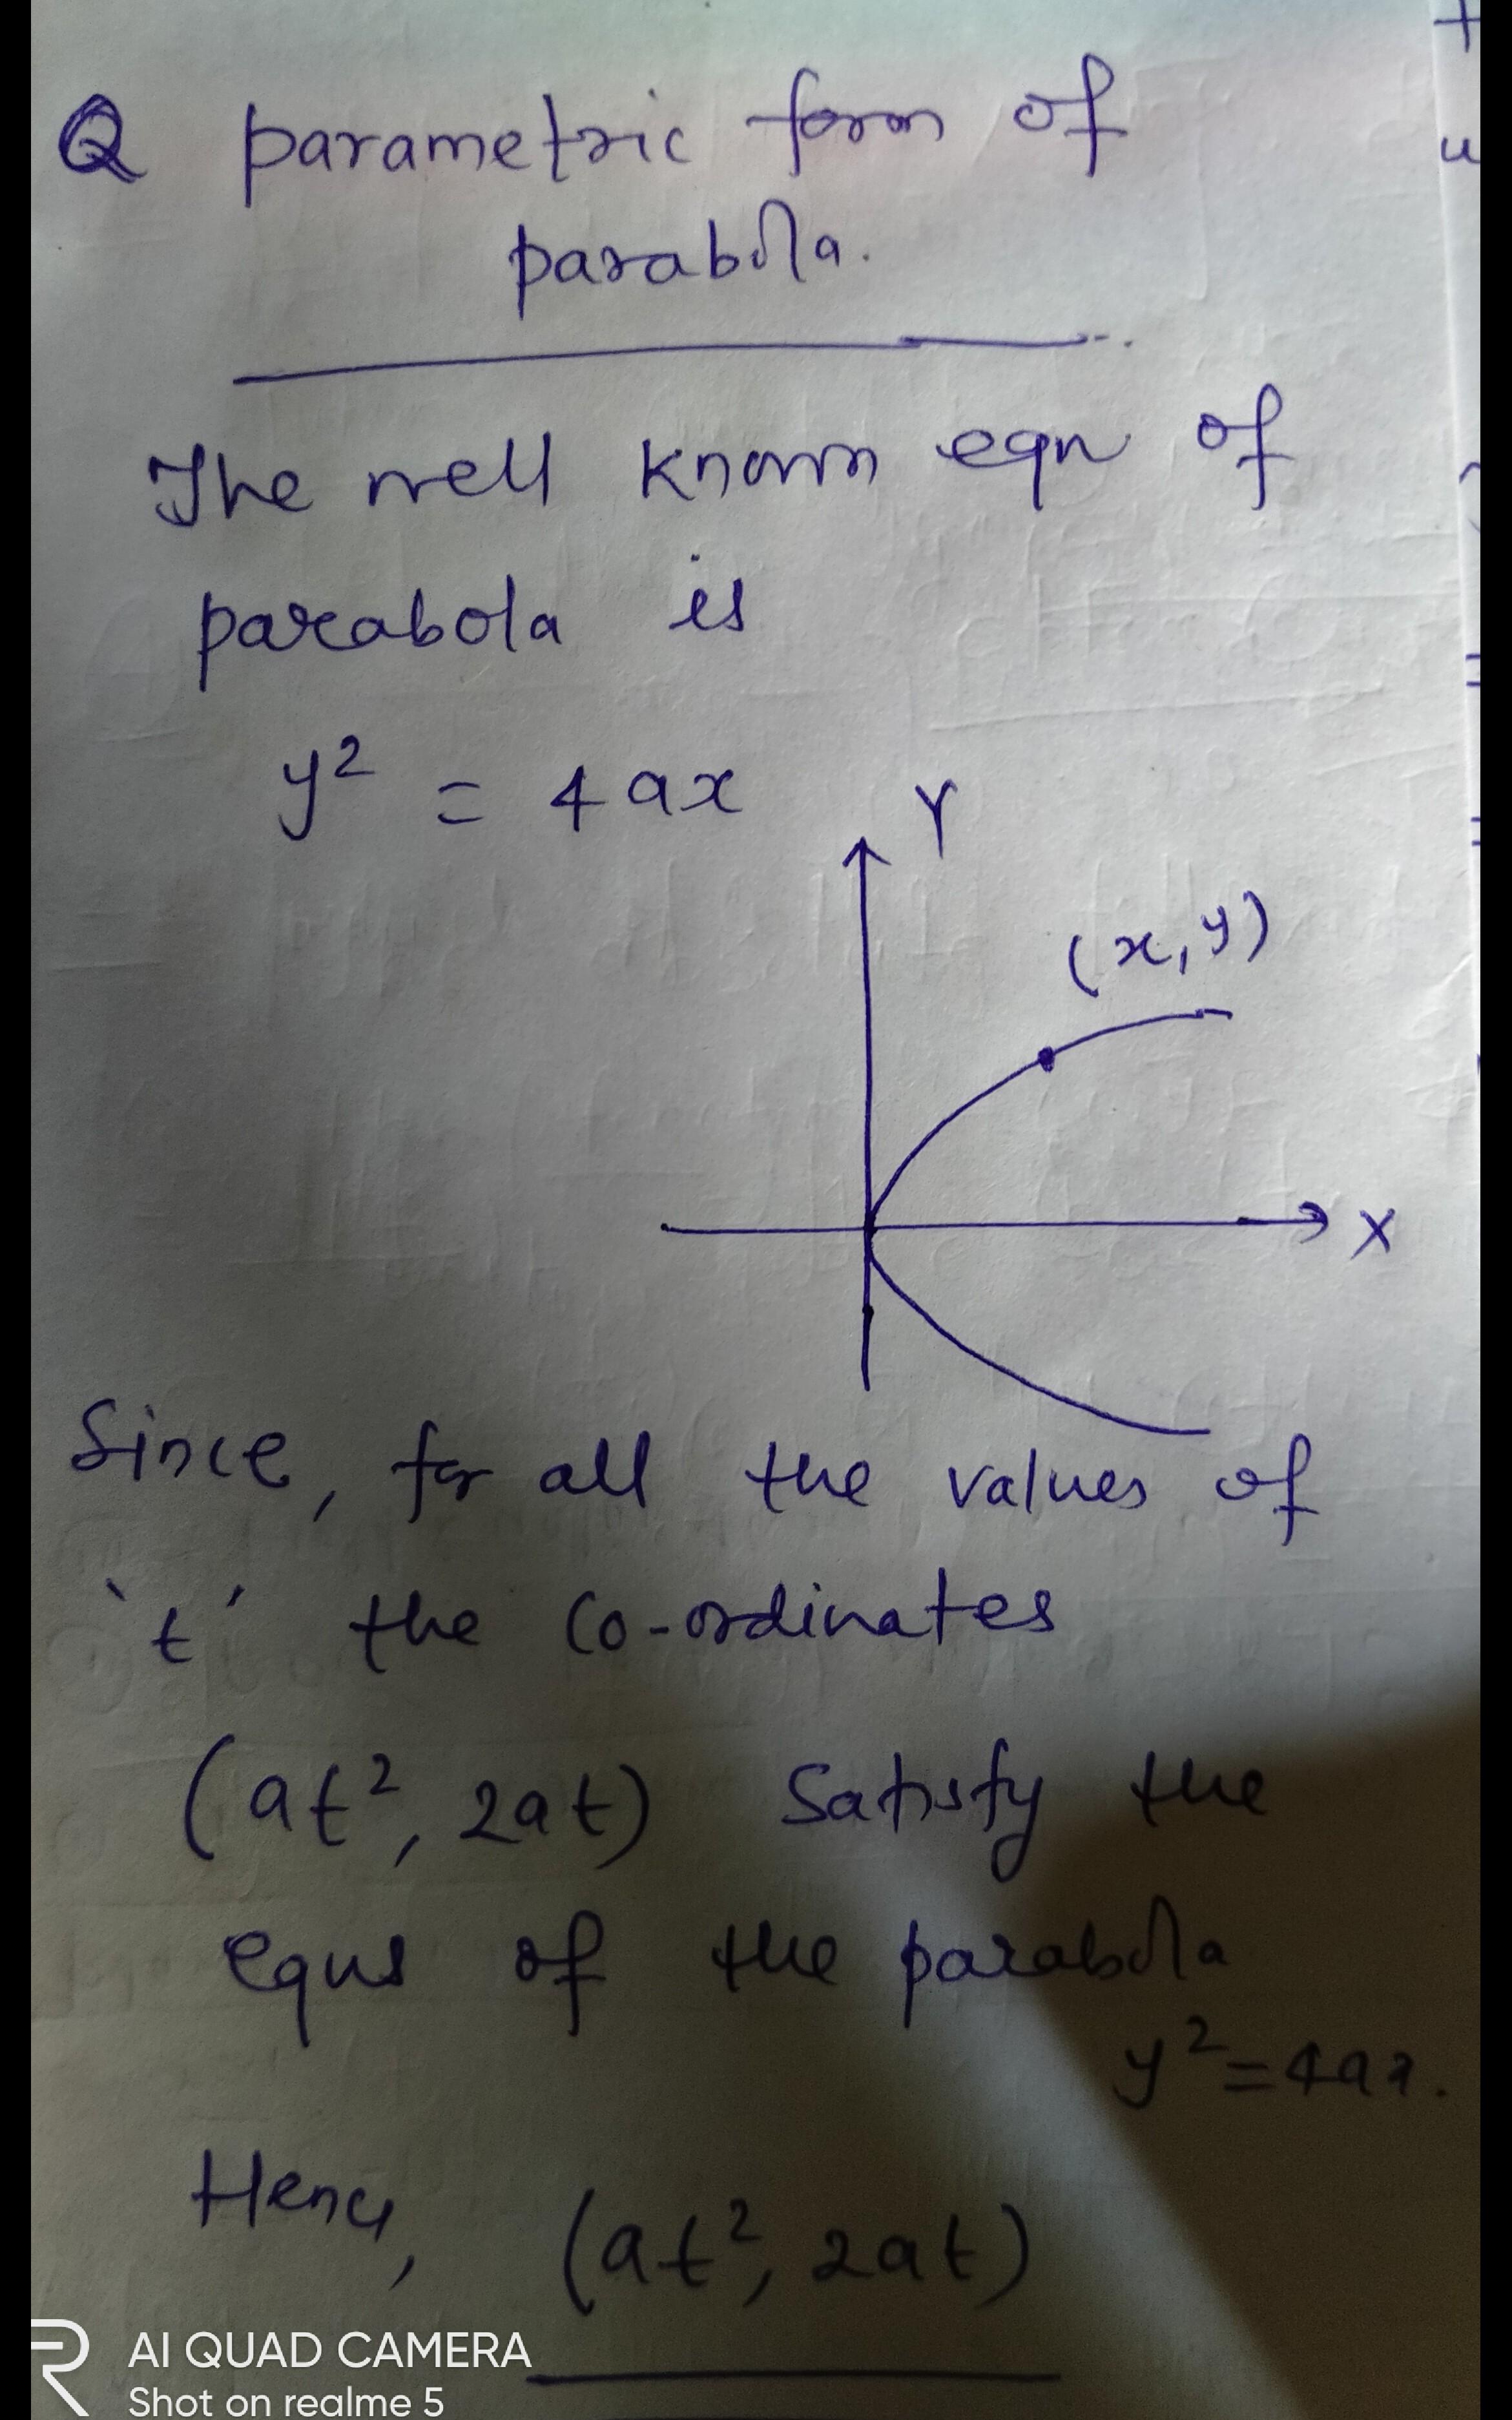 Q parametric form of
parabola.
The well known eqn of
parabola is
y² = 4ax
Y
(x, y)
X
Since, for all the values of
't' the co-ordinates
(at², 2at) Satisfy the
equs of the parabola
y² = 4ax.
Hence, (at², 2at)
AI QUAD CAMERA
Shot on realme 5